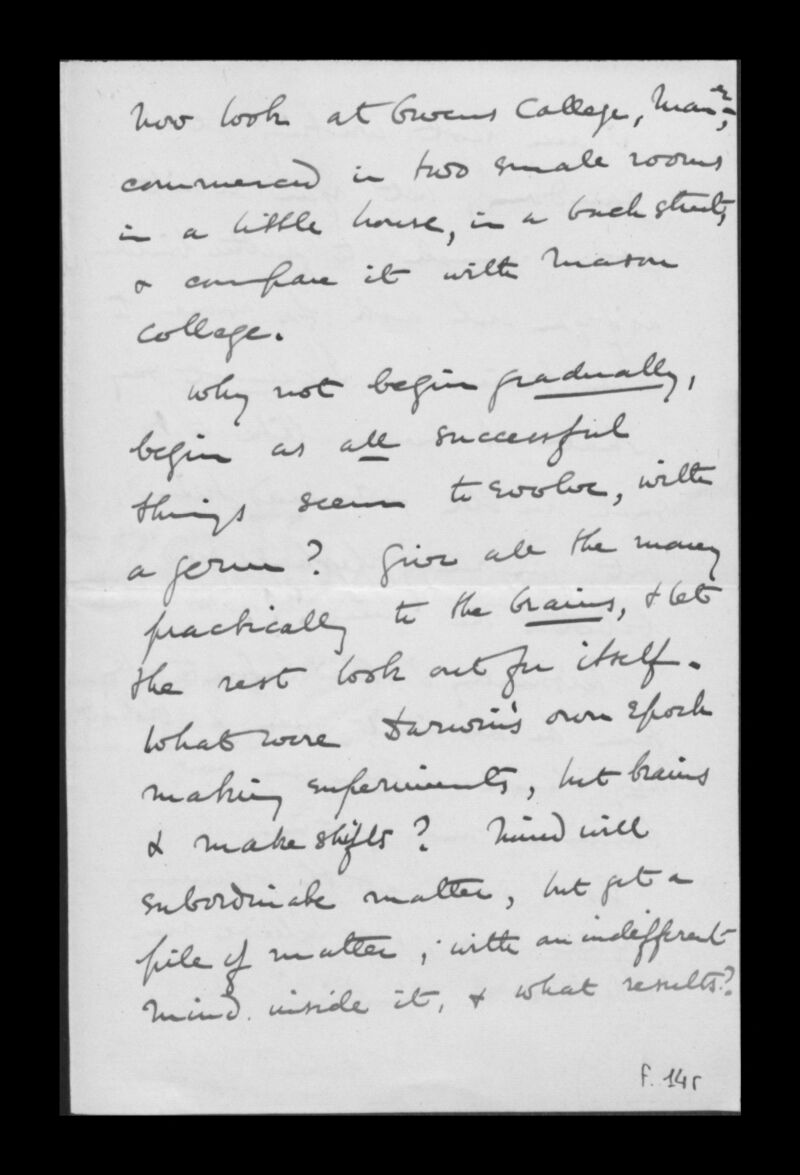 now look at Owens College, Man^er;
commenced in two small rooms
in a little house, in a back street,
& compare it with Mason
College.
Why not begin gradually,
begin as all successful
things seem to evolve, with
a germ? Give all the money
practically to the brains, & let
the rest look out for itself.
What were Darwin's own Epoch
making experiments, but brains
& make shifts? Mind will
subordinate matter, but get a
pile of matter, with an indifferent
mind inside it, & what results?
f. 14r